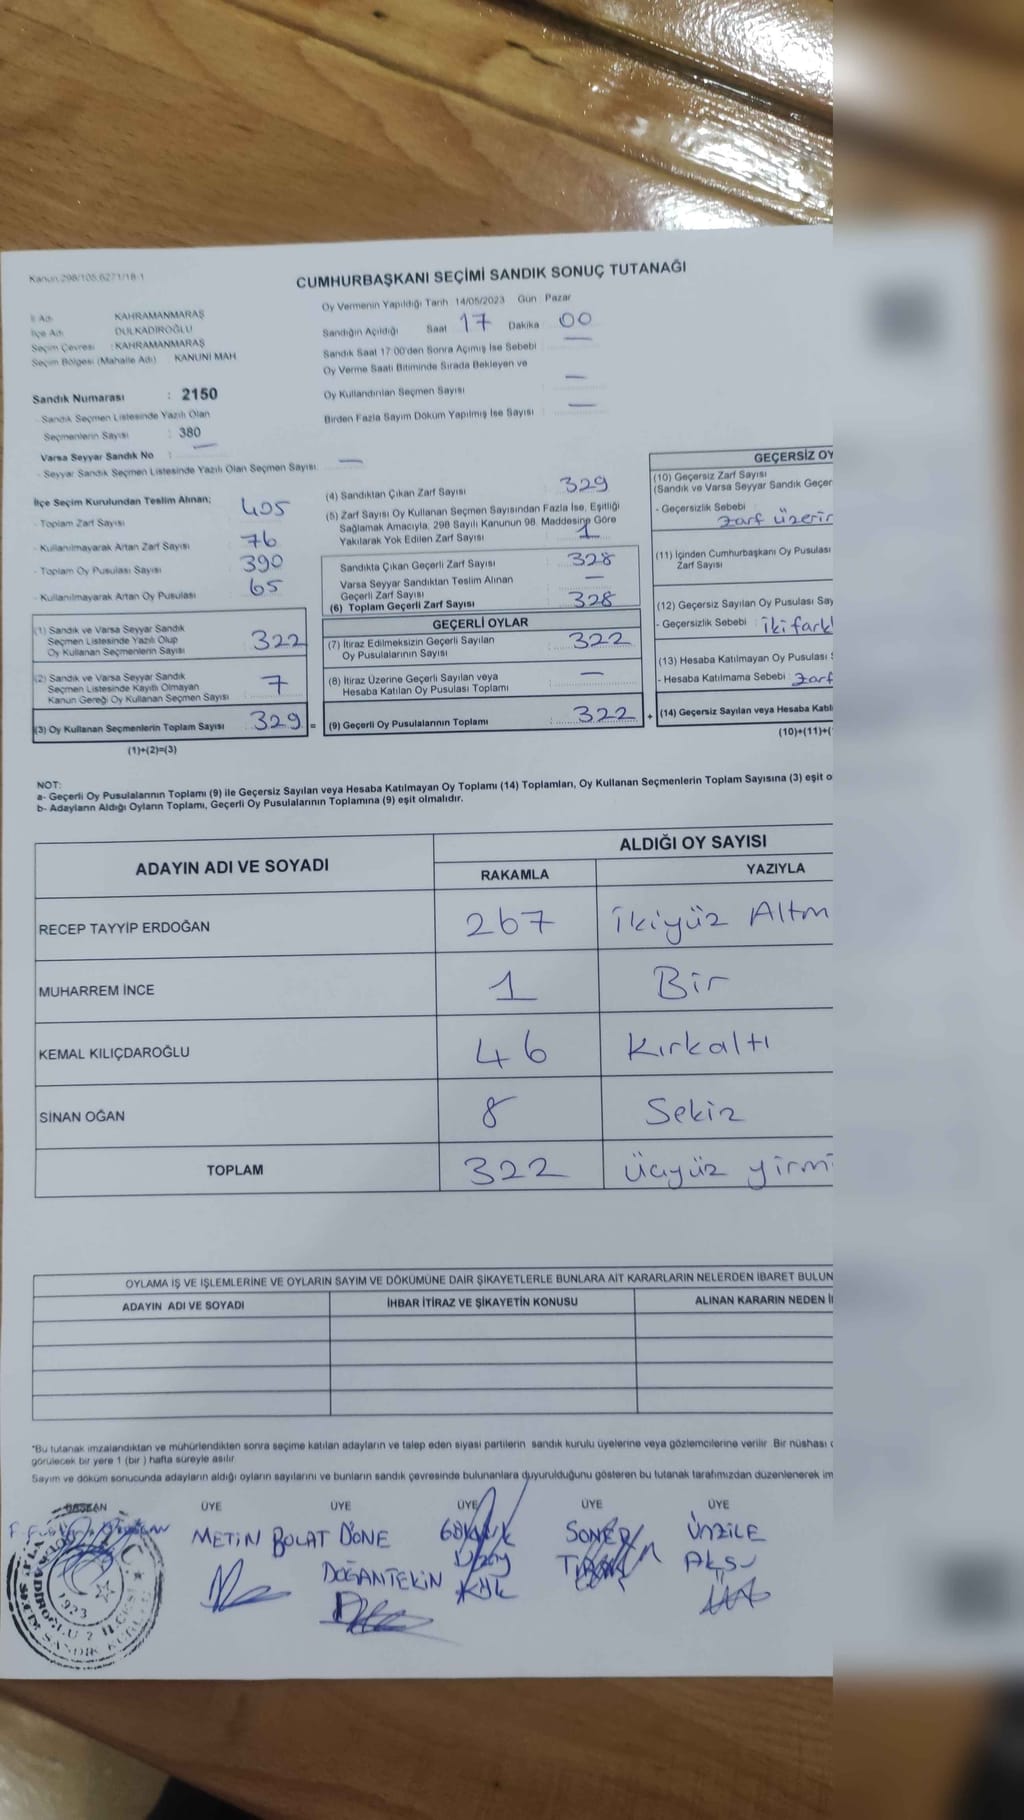 Kanun:298/105,6271/18-1
CUMHURBAŞKANI SEÇİMİ SANDIK SONUÇ TUTANAĞI
İl Adı : KAHRAMANMARAŞ
İlçe Adı : DULKADİROĞLU
Seçim Çevresi : KAHRAMANMARAŞ
Seçim Bölgesi (Mahalle Adı) : KANUNİ MAH
Oy Vermenin Yapıldığı Tarih 14/05/2023 Gün Pazar
Sandığın Açıldığı Saat 17 Dakika 00
Sandık Saat 17:00'den Sonra Açılmış İse Sebebi —
Oy Verme Saati Bitiminde Sırada Bekleyen ve
Oy Kullandırılan Seçmen Sayısı —
Birden Fazla Sayım Döküm Yapılmış İse Sayısı —
Sandık Numarası : 2150
- Sandık Seçmen Listesinde Yazılı Olan
Seçmenlerin Sayısı : 380
Varsa Seyyar Sandık No : —
- Seyyar Sandık Seçmen Listesinde Yazılı Olan Seçmen Sayısı —
İlçe Seçim Kurulundan Teslim Alınan;
- Toplam Zarf Sayısı 405
- Kullanılmayarak Artan Zarf Sayısı 76
- Toplam Oy Pusulası Sayısı 390
- Kullanılmayarak Artan Oy Pusulası 65
(1) Sandık ve Varsa Seyyar Sandık
Seçmen Listesinde Yazılı Olup
Oy Kullanan Seçmenlerin Sayısı 322
(2) Sandık ve Varsa Seyyar Sandık
Seçmen Listesinde Kayıtlı Olmayan
Kanun Gereği Oy Kullanan Seçmen Sayısı 7
(3) Oy Kullanan Seçmenlerin Toplam Sayısı 329 =
(1)+(2)=(3)
(4) Sandıktan Çıkan Zarf Sayısı : 329
(5) Zarf Sayısı Oy Kullanan Seçmen Sayısından Fazla İse, Eşitliği
Sağlamak Amacıyla, 298 Sayılı Kanunun 98. Maddesine Göre
Yakılarak Yok Edilen Zarf Sayısı 1
Sandıkta Çıkan Geçerli Zarf Sayısı 328
Varsa Seyyar Sandıktan Teslim Alınan
Geçerli Zarf Sayısı —
(6) Toplam Geçerli Zarf Sayısı 328
GEÇERLİ OYLAR
(7) İtiraz Edilmeksizin Geçerli Sayılan
Oy Pusulalarının Sayısı : 322
(8) İtiraz Üzerine Geçerli Sayılan veya
Hesaba Katılan Oy Pusulası Toplamı : —
(9) Geçerli Oy Pusulalarının Toplamı : 322 +
GEÇERSİZ OY
(10) Geçersiz Zarf Sayısı
(Sandık ve Varsa Seyyar Sandık Geçer
- Geçersizlik Sebebi :
Zarf üzerin
(11) İçinden Cumhurbaşkanı Oy Pusulası
Zarf Sayısı
(12) Geçersiz Sayılan Oy Pusulası Say
- Geçersizlik Sebebi : iki farkl
(13) Hesaba Katılmayan Oy Pusulası S
- Hesaba Katılmama Sebebi : Zarf
(14) Geçersiz Sayılan veya Hesaba Katıl
(10)+(11)+(
NOT:
a- Geçerli Oy Pusulalarının Toplamı (9) ile Geçersiz Sayılan veya Hesaba Katılmayan Oy Toplamı (14) Toplamları, Oy Kullanan Seçmenlerin Toplam Sayısına (3) eşit o
b- Adayların Aldığı Oyların Toplamı, Geçerli Oy Pusulalarının Toplamına (9) eşit olmalıdır.
ADAYIN ADI VE SOYADI
ALDIĞI OY SAYISI
RAKAMLA YAZIYLA
RECEP TAYYİP ERDOĞAN 267 ikiyüz Altm
MUHARREM İNCE 1 Bir
KEMAL KILIÇDAROĞLU 46 Kırkaltı
SİNAN OĞAN 8 Sekiz
TOPLAM 322 üçyüz yirmi
OYLAMA İŞ VE İŞLEMLERİNE VE OYLARIN SAYIM VE DÖKÜMÜNE DAİR ŞİKAYETLERLE BUNLARA AİT KARARLARIN NELERDEN İBARET BULUN
ADAYIN ADI VE SOYADI İHBAR İTİRAZ VE ŞİKAYETİN KONUSU ALINAN KARARIN NEDEN İ
*Bu tutanak imzalandıktan ve mühürlendikten sonra seçime katılan adayların ve talep eden siyasi partilerin sandık kurulu üyelerine veya gözlemcilerine verilir. Bir nüshası
görülecek bir yere 1 (bir ) hafta süreyle asılır.
Sayım ve döküm sonucunda adayların aldığı oyların sayılarını ve bunların sandık çevresinde bulunanlara duyurulduğunu gösteren bu tutanak tarafımızdan düzenlenerek im
BAŞKAN ÜYE ÜYE ÜYE ÜYE ÜYE
METİN BOLAT DÖNE SONER ÜNZİLE
DOĞANTEKİN AKSU
1923